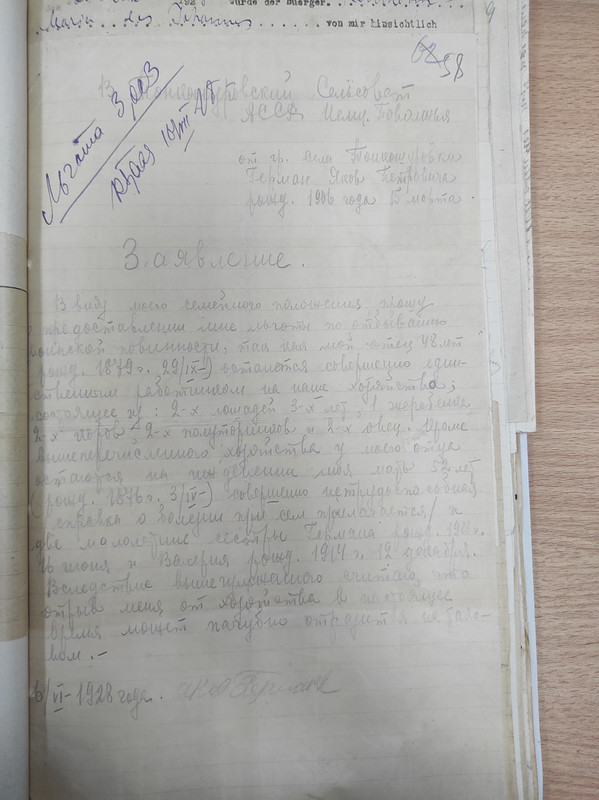 wurde der Buerger.
von mir hinsichtlich
62 58
Льгота 3 раз
В Тонкошуровский Сельсовет
АССР Немц. Поволжья
от гр. села Тонкошуровки
Герман Яков Петровича
рожд. 1906 года 15 марта
Заявление.
В виду моего семейного положения прошу
предоставлении мне льготы по отбыванию
воинской повинности, так как мой отец 48 лет
рожд. 1879 г. 29/IX-) остается совершенно един-
ственным работником на наше хозяйства,
состоящее из: 2-х лошадей 3-х лет, 1 жеребенка
2-х коров 2-х полуторников и 8-х овец. Кроме
вышеперечисленного хозяйства у моего отца
остаются на иждевении моя мать 52 лет
(рожд. 1876 г. 3/IV-) совершенно нетрудоспособная
/справка о болезни при сем прилагается/ и
две малолетние сестры Германа рожд.
16 июня и Валерия рожд. 1914 г. 12 декабря.
Вследствие вышеизложенного считаю, что
отрыв меня от хозяйства в настоящее
время может пагубно отразится на тако-
вом.-
6/VI-1928 года. Яков Германн